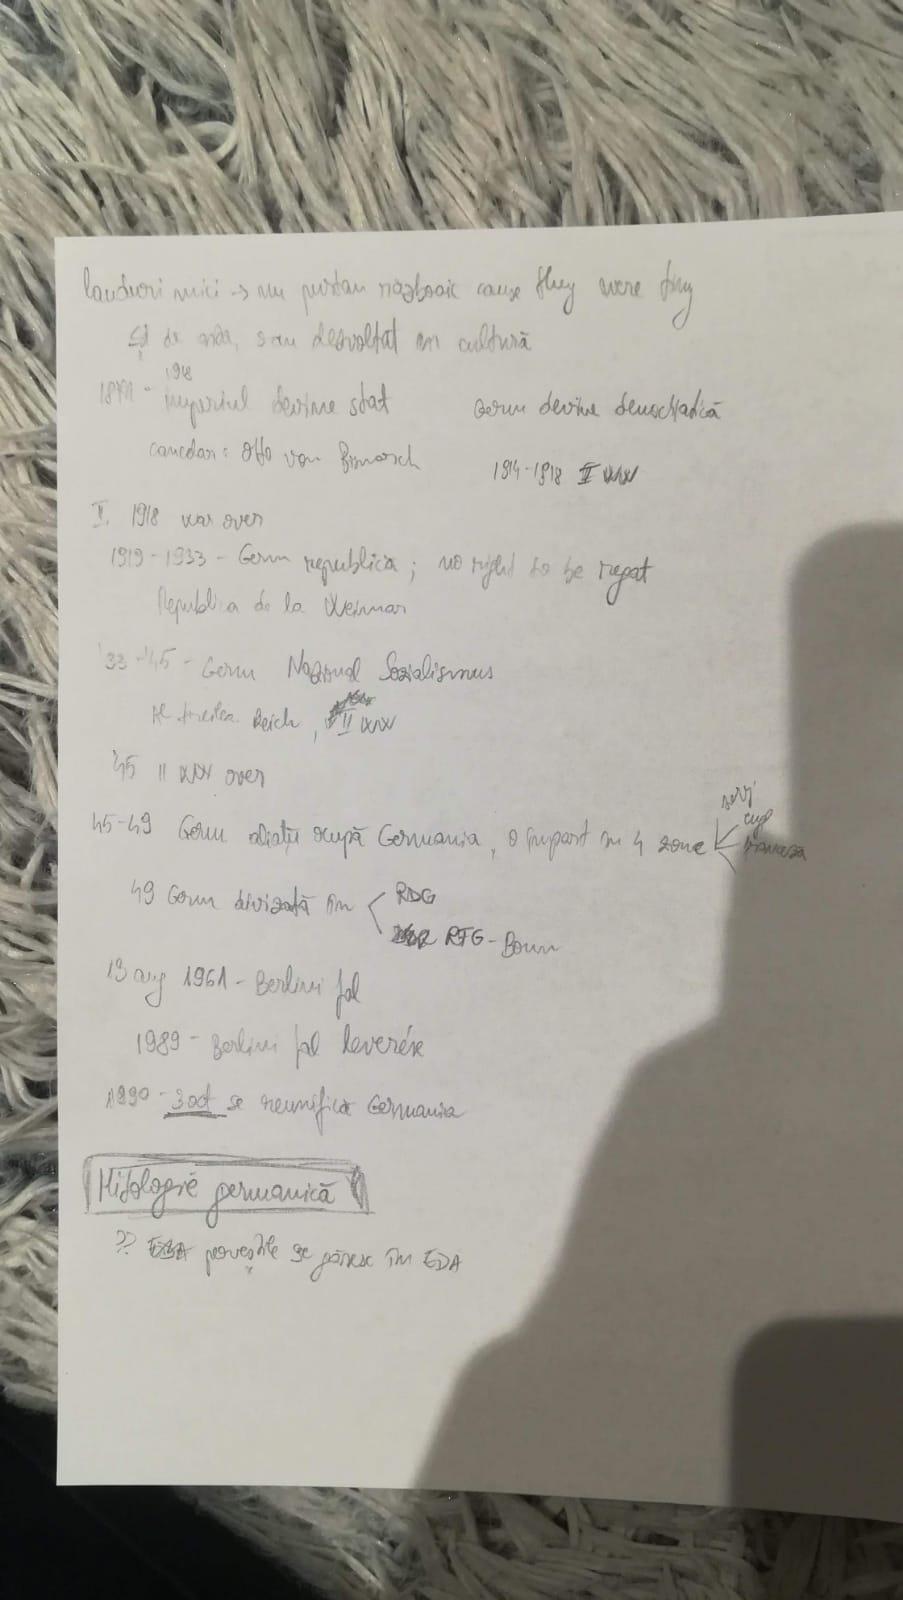 landuri mici -> nu purtau războaie cause they were tiny
Și de asta, s-au dezvoltat în cultură
1871 - 1918 imperiul devine stat
cancelar: Otto von Bismarck
Germ devine democratică
1914-1918 II WW
II. 1918 war over
1919-1933 - Germ republica; no right to be regat
Republica de la Weimar
'33-'45 - Germ Național Sozialismus
Al treilea Reich, II WW
'45 II WW over
45-49 Germ aliații ocupă Germania, o împart în 4 zone
49 Germ divizată în
RDG
RFG - Bonn
13 aug 1961 - Berlini fal
1989 - Berlini fal leverése
1990 - 3 oct se reunifică Germania
Mitologie germanică
?? poveștile se găsesc în EDA